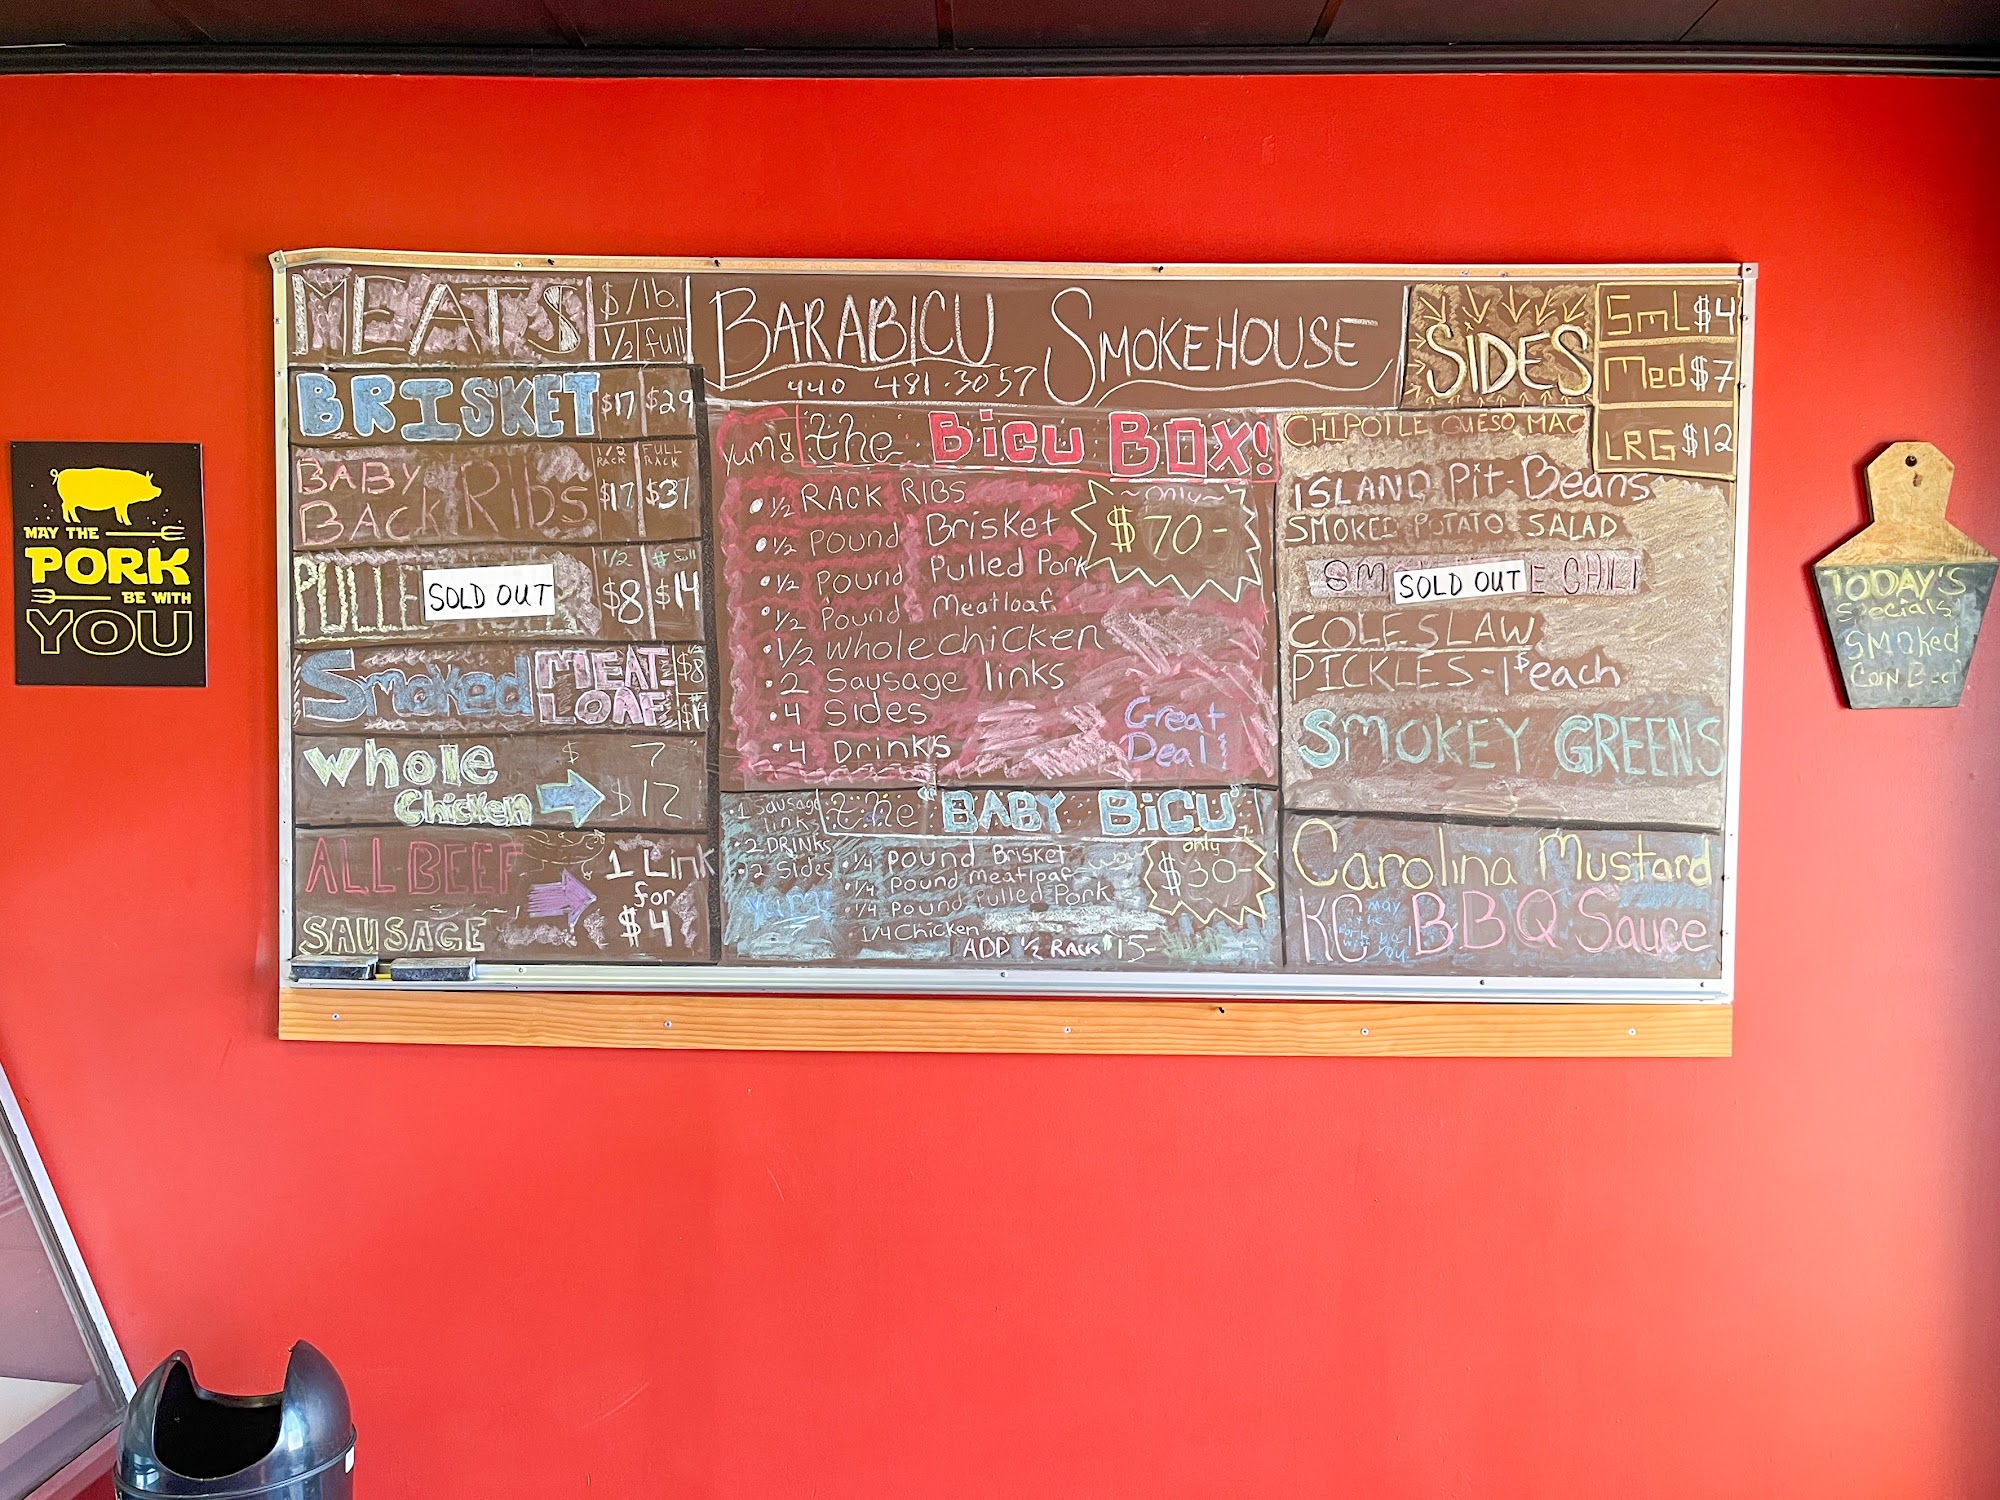 MAY THE
PORK
BE WITH
YOU
MEATS $/lb.
1/2 full
BRISKET $17 $29
BABY BACK RIBS
1/2 RACK FULL RACK
$17 $31
PULLE
SOLD OUT
1/2 full
$8 $14
Smoked MEAT-LOAF
1/2 $8
$14
Whole $ 7
Chicken $12
ALL BEEF
SAUSAGE
1 Link
for
$4
BARABICU SMOKEHOUSE
440 481-3057
yum! the Bicu BOX!
~only~
$70-
• 1/2 RACK RIBS
• 1/2 Pound Brisket
• 1/2 Pound Pulled Pork
• 1/2 Pound Meatloaf
• 1/2 Whole chicken
• 2 Sausage links
• 4 Sides
• 4 Drinks
Great
Deal!
the "BABY BiCU"
• 1 Sausage
link
• 2 DRINKS
• 2 Sides
yum!
• 1/4 Pound Brisket
• 1/4 Pound Meatloaf
• 1/4 Pound Pulled Pork
1/4 Chicken
ADD 1/2 RACK $15-
wow
only
$30-
SIDES
SmL $4
Med $7
LRG $12
CHIPOTLE QUESO MAC
ISLAND Pit-Beans
SMOKED POTATO SALAD
SM E CHILI
SOLD OUT
COLESLAW
PICKLES - 1$ each
SMOKEY GREENS
Carolina Mustard
KC BBQ Sauce
may
the
TODAY'S
Specials
SMOKed
Corn Beef